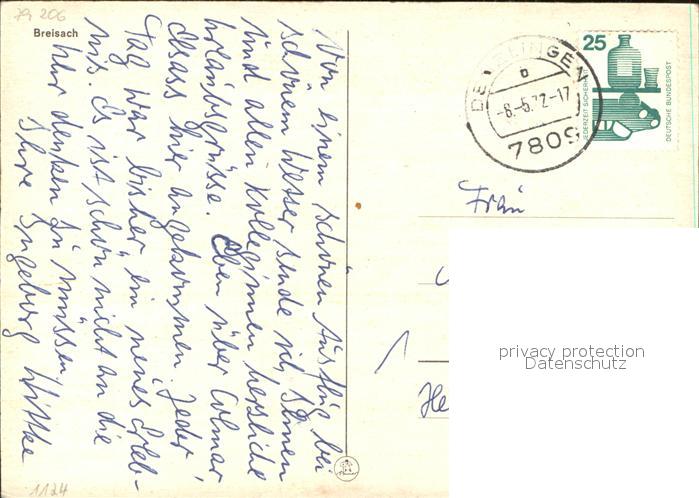 79 206
Breisach
Von einem schönen Ausflug bei
schönem Wetter sende ich Ihnen
und allen Kolleginnen herzliche
Urlaubsgrüsse. Eben über Colmar,
Elsass hier angekommen. Jeder
Tag war bisher ein neues Erleb-
nis. Es ist schön nicht an die
Uhr denken zu müssen.
Ihre Ingeborg Wittke
1124
DENZLINGEN
b
-8.-5.72-17
7809
25
JEDERZEIT SICHERHEIT
DEUTSCHE BUNDESPOST
Frau
He
privacy protection
Datenschutz